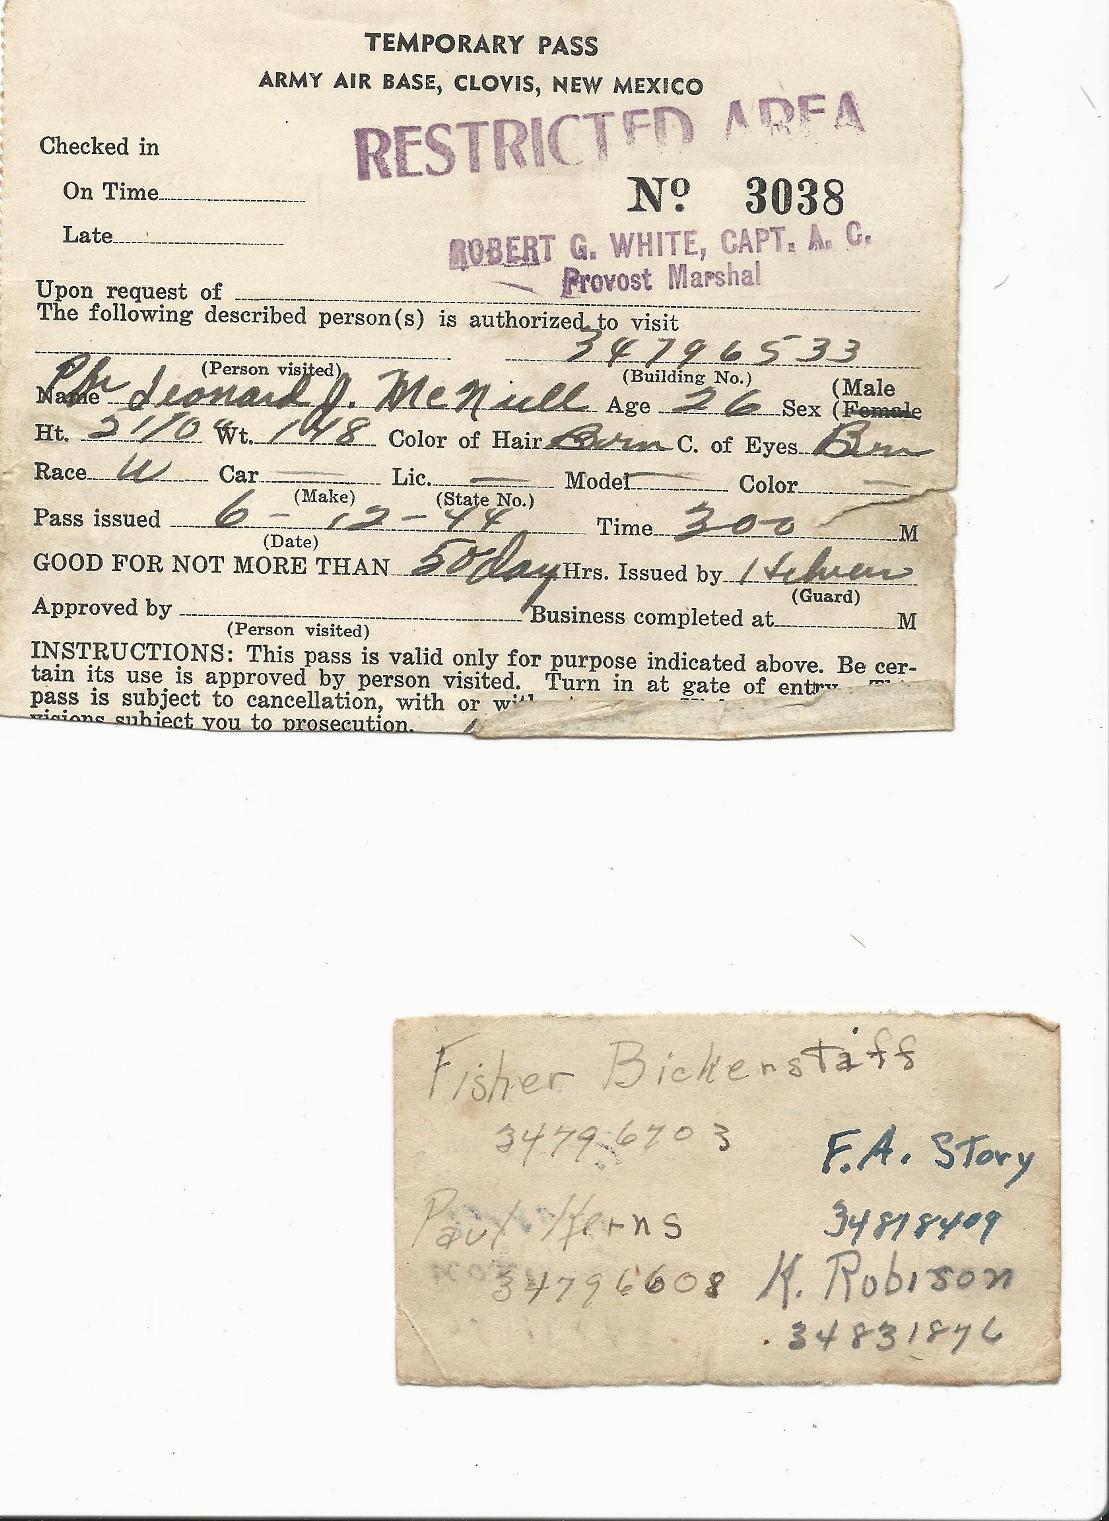 TEMPORARY PASS
ARMY AIR BASE, CLOVIS, NEW MEXICO
RESTRICTED AREA
Checked in
On Time
Nº 3038
Late
ROBERT G. WHITE, CAPT. A. C.
Provost Marshal
Upon request of
The following described person(s) is authorized to visit
34796533
(Person visited) (Building No.) (Male
Name Leonard J. McNiell Age 26 Sex (Female
Ht. Wt. 148 Color of Hair Brn C. of Eyes Brn
Race W Car Lic. Model Color
(Make) (State No.)
Pass issued 6-12-44 Time 300 M
(Date)
GOOD FOR NOT MORE THAN 50 day Hrs. Issued by
(Guard)
Approved by Business completed at M
(Person visited)
INSTRUCTIONS: This pass is valid only for purpose indicated above. Be cer-
tain its use is approved by person visited. Turn in at gate of entry.
pass is subject to cancellation, with or
visions subject you to prosecution.
Fisher Bickenstaff
34796703
F.A. Story
34818409
Paul Kerns
34796608
K. Robison
34831876